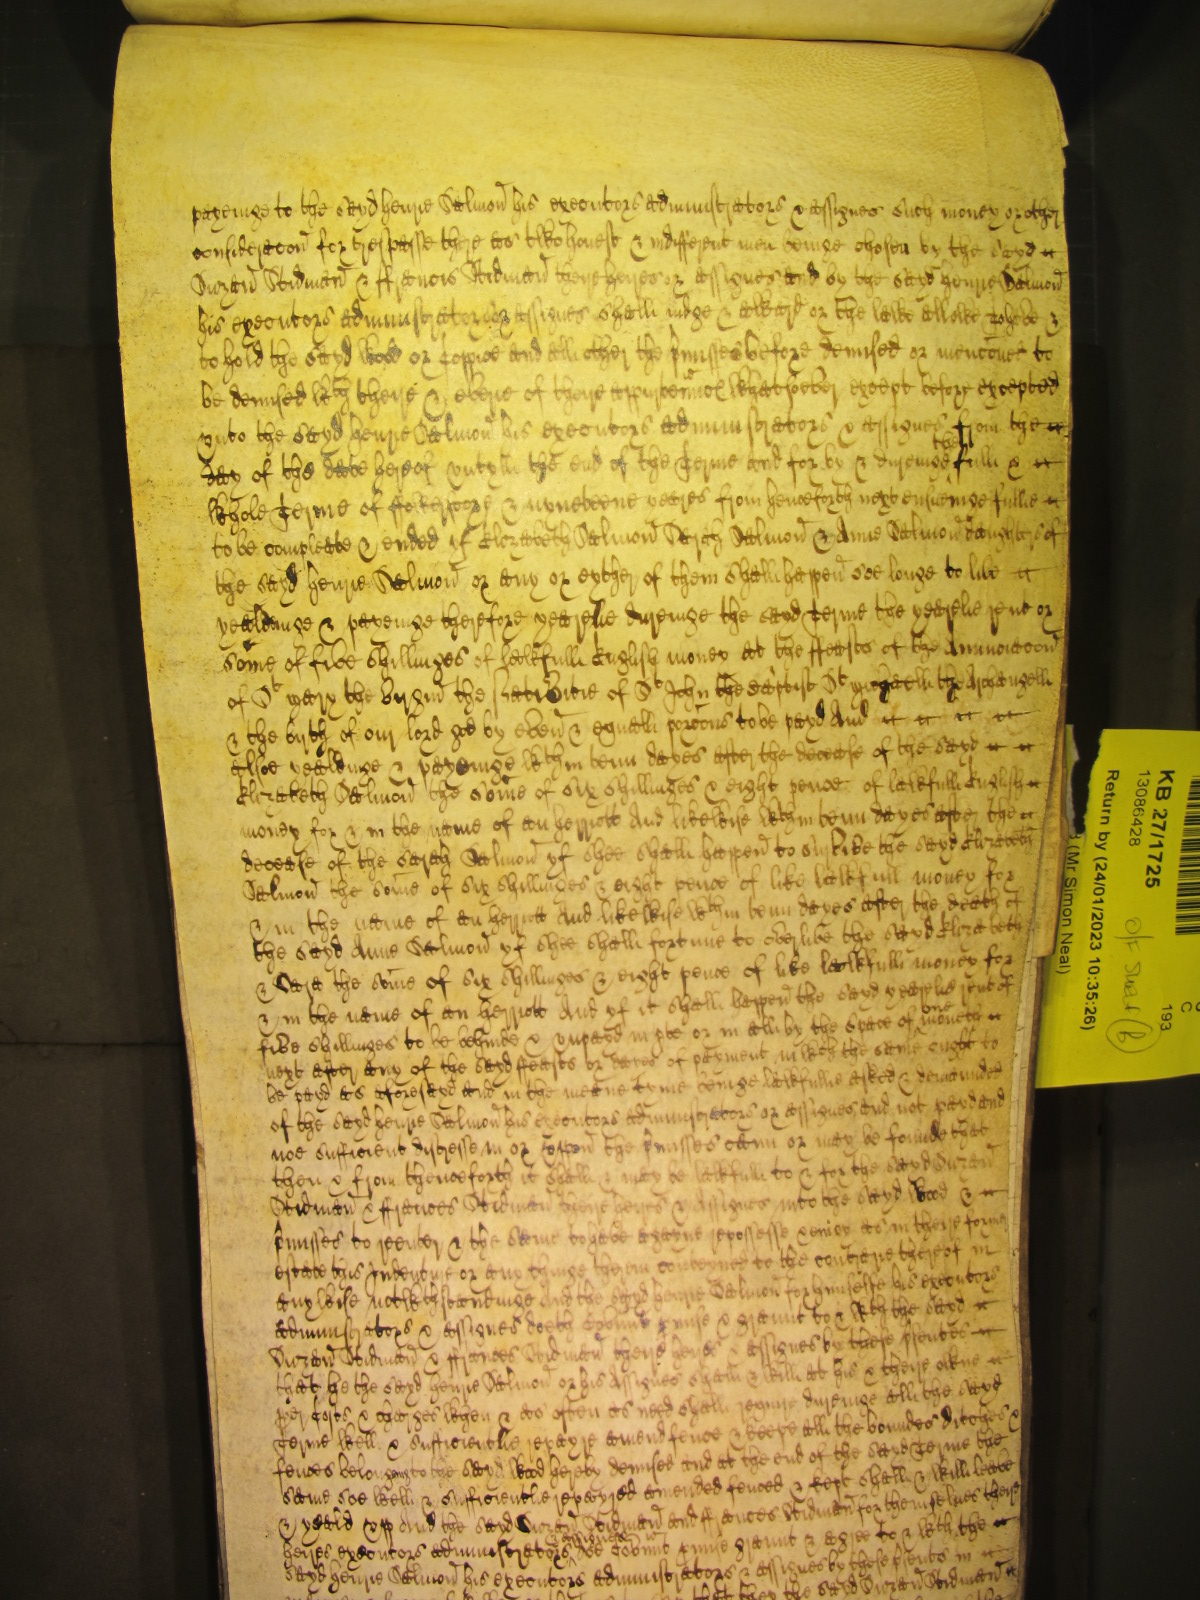 payeinge to the sayd henrie Salmon his executors administrators & assignes such money or other
consideracon for trespasse there as twoe honest & indifferent men beinge chosen by the sayd
Stidman & ffrancis Stidman there heires or assignes and by the sayd henrie Salmon
his executors administrators or assignes shall iudge & award or the lawe allowe To have &
to hold the sayd wood or Coppice and all other the pmisses before demised or mencioned to
be demised wth theire & everie of there appurtennces whatsoever except before excepted
vnto the sayd henrie Salmon his executors administrators & assignes from the
day of the date hereof vntyll the end of the Terme and for by & duringe the full &
whole Terme of fowerscore & nyneteene yeares from henceforth next ensuinge fullie
to be compleate & ended if Elizabeth Salmon Sarah Salmon & Anne Salmon daughters of
the sayd henrie Salmon or any or eyther of them shall happen soe longe to live
yealdinge & payeinge therefore yearelie duringe the sayd Terme the yearelie rent or
some of five shillinges of lawfull English money at the ffeasts of the Annunciacon
of St mary the virgin the Nativitie of St John the Baptist St michaell the Archangell
& the birth of our lord god by even & equall porcons to be payd And
alsoe yealdinge & payeinge wthin tenn dayes after the decease of the sayd
Elizabeth Salmon the some of six shillinges & eight pence of lawfull English
money for & in the name of an herriott And likewise wthin tenn dayes after the
decease of the Sarah Salmon yf shee shall happen to survive the sayd Elizabeth
Salmon the some of six shillinges & eight pence of like lawfull money for
& in the name of an herriott And likewise wthin tenn dayes after the death of
the sayd Anne Salmon yf shee shall fortune to overlive the sayd Elizabeth
& Sara the some of six shillinges & eight pence of like lawfull money for
& in the name of an herriott And yf it shall happen the sayd yearelie rent of
five shillinges to be behinde & vnpayd in pte or in all by the space of one moneth
next after any of the sayd ffeasts or dayes of payment in wch the same ought to
be payd as aforesayd and in the meane tyme beinge lawfullie asked & demaunded
of the sayd henrie Salmon his executors administrators or assignes and not payd and
noe sufficient distresse in or vppon the pmisses cann or may be founde that
then & from thenceforth it shall & may be lawfull to & for the sayd
Stidman & ffrances Stidman there heires & Assignes into the sayd wood &
pmisses to reenter & the same to have agayne repossesse & enioy as in there former
estate this Indenture or any thinge therein conteyned to the contrarie thereof in
any wise notwthstandinge And the sayd henrie Salmon for himselfe his executors
administrators & assignes doeth Covennt pmise & graunt to & wth the sayd
Stidman & ffrances Stidman there heires & assignes by these psentes
that he the sayd henrie Salmon or his Assignes shall & will at his & there owne
per Costs & charges when & as often as need shall require duringe all the sayd
Terme well & sufficientlie repayre amend fence & keepe all the boundes ditches &
fences belonging to the sayd wood hereby demised and at the end of the sayd Terme the
same soe well & sufficientlie repayred amended fenced & kept shall & will leave
& yeald vpp And the sayd Stidman and ffrances Stidman for themselves there
heires executors administrators & assignes doe Covennt pmise graunt & agree to & wth the
sayd henrie Salmon his executors administrators & assignes by these psents in
that they the sayd Stidman
KB 27/1725
13086428
193
C
Return by (24/01/2023 10:35:26)
(Mr Simon Neal)